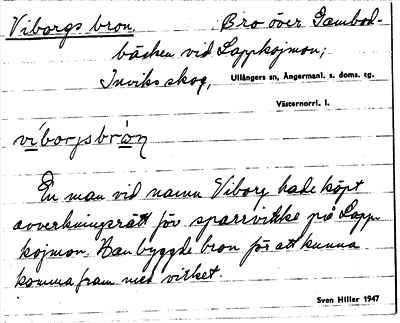 Viborgs bron. Bro över Tambod-
bäcken vid Lappkojmon;
Inviks skog, Ullångers sn, Ångermanl. s. doms. tg.
Västernorrl. l.
viborgsbrón
En man vid namn Viborg hade köpt
avverkningsrätt för sparrvirke på Lapp-
kojmon. Han byggde bron för att kunna
komma fram med virket.
Sven Hiller 1947